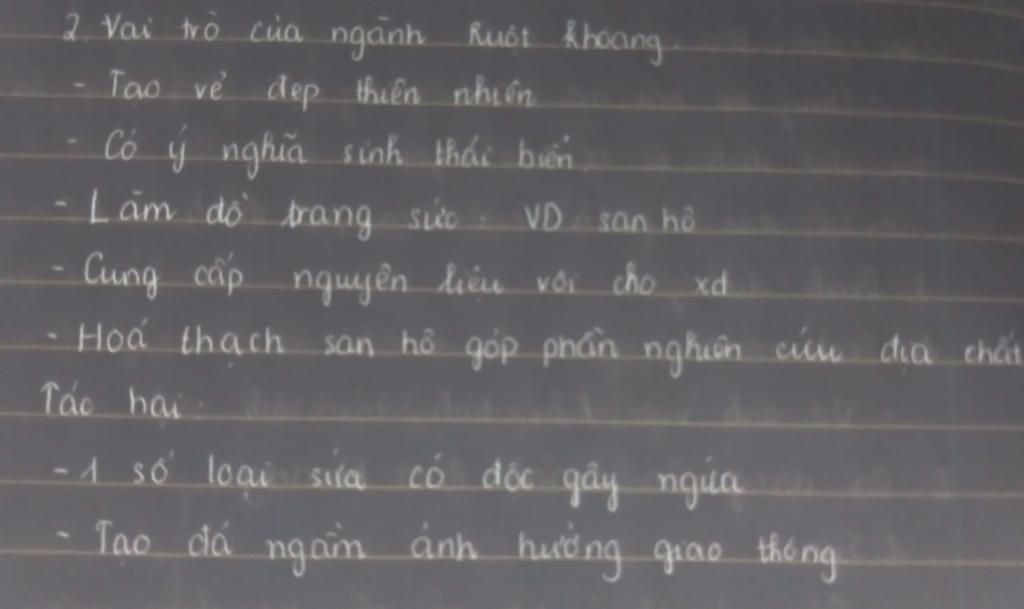 2. Vai trò của ngành Ruột khoang.
- Tạo vẻ đẹp thiên nhiên
- Có ý nghĩa sinh thái biển
- Làm đồ trang sức. VD: san hô
- Cung cấp nguyên liệu vôi cho xd
- Hoá thạch san hô góp phần nghiên cứu địa chất
Tác hại:
- 1 số loại sứa có độc gây ngứa
- Tạo đá ngầm ảnh hưởng giao thông.